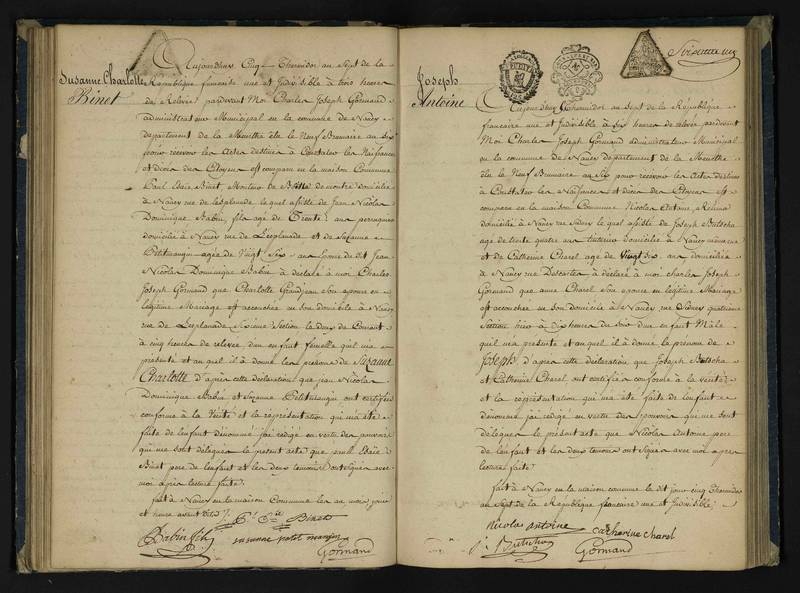 Susanne Charlotte
Binet
Aujourdhuy Cinq Thermidor au Sept de la
Republique francaise une et Indivisible à trois heures
de Relevée pardevant Moi Charles Joseph Gormand
administrateur Municipal en la commune de Nancy
departement de la Meurthe élu le Neuf Brumaire an six
pour recevoir les Actes destinés à Constater les Naissances
et décès des Citoyens est comparu en la maison Commune
Paul Elaie Binet domicilié
à Nancy rue de Lesplanade lequel assisté de Jean Nicolas
Dominique Babin fils agé de Trente ans perruquier
domicilié à Nancy rue de L'esplanade et de Suzanne
Petitmangin agée de Vingt Six ans dudit Jean
Nicolas Dominique Babin à déclaré à moi Charles
Joseph Gormand que Charlotte Grandjean Son epouse en
légitime Mariage est accouchée en son domicilié à Nancy
rue de Lesplanade Section le deux du Courant
à cinq heures de relevée, d'un enfant femelle qu'il m'a
présenté et auquel il à donné les prénoms de Suzanne
Charlotte d'après cette déclaration que jean Nicolas
Dominique Babin et Suzanne Petitmangin ont certifiée
conforme à la Vérité et la représentation qui m'a été
faite de lenfant dénommé jai rédigé en vertu des pouvoirs
qui me sont délégués le present acte que Paul Elaie
Binet pere de lenfant et les deux temoins ont signés avec
moi après lecture faite.
fait à Nancy en la maison Commune les an mois jour
et heure avant dits
Binet
Babin fils
susanne petit mangin
Gormand
Joseph
Antoine
Aujourdhuy Thermidor au sept de la République
francaise une et Indivisible à Six heures de relevée pardevant
Moi Charles Joseph Gormand administrateur Municipal
en la commune de Nancy departement de la Meurthe
élu le Neuf Brumaire an Six pour recevoir les Actes destinés
à Constater les Naissances et décès des Citoyens est
comparu en la maison Commune Nicolas Antoine
domicilié à Nancy rue Sidney lequel assisté de Joseph Butscha
agé de trente quatre ans domicilié à Nancy même rue
et de Catherine Charel agée de Vingt Six ans domiciliée
à Nancy rue Descartes à déclaré à moi charles Joseph
Gormand que anne Charel Son epouse en légitime Mariage
est accouchée en son domicile à Nancy rue Sidney quatrieme
Section hier à Dix heures du Soir d'un enfant Mâle
qu'il m'a présenté et auquel il à donné le prénom de
Joseph d'après cette déclaration que Joseph Butscha
et Catherine Charel ont certifiée conforme à la verité
et la représentation qui m'a été faite de lenfant
dénommé jai rédigé en vertu des pouvoirs qui me sont
délégués le présent acte que Nicolas Antoine pere
de lenfant et les deux temoins ont signés avec moi après
lecture faite.
fait à Nancy en la maison commune le dit jour cinq Thermidor
au Sept de la République francaise une et Indivisible
nicolas antoine
catharine charel
Gormand